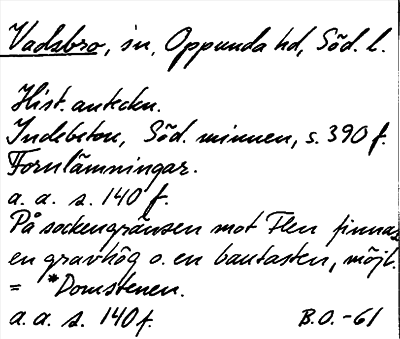 Vadsbro, sn, Oppunda hd, Söd. l.
Hist. anteckn.
Indebetou, Söd. minnen, s. 390 f.
Fornlämningar.
a. a. s. 140 f.
På sockengränsen mot Flen finnas
en gravhög o. en bautasten, möjl.
= *Domstenen.
a. a. s. 140 f. B.O.-61